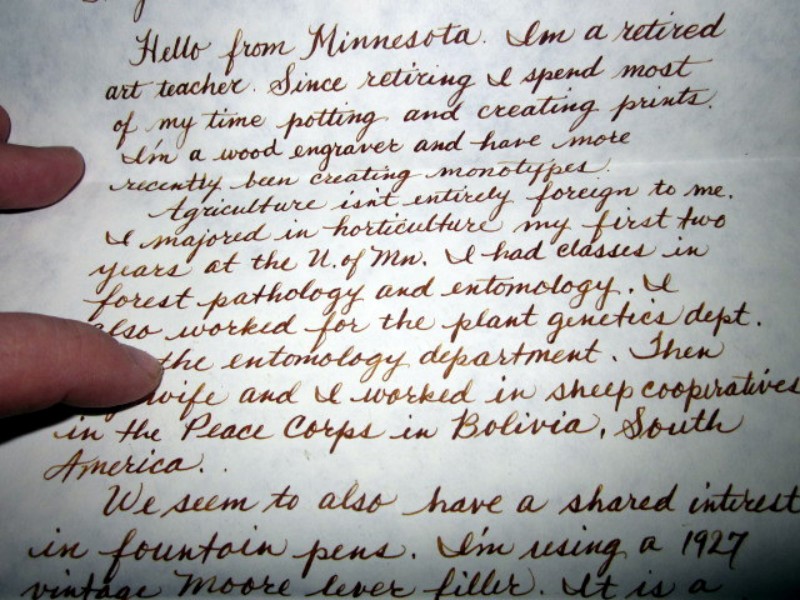 Hello from Minnesota. Im a retired
art teacher. Since retiring I spend most
of my time potting and creating prints.
I'm a wood engraver and have more
recently been creating monotypes.
Agriculture isn't entirely foreign to me.
I majored in horticulture my first two
years at the U. of Mn. I had classes in
forest pathology and entomology. I
also worked for the plant genetics dept.
the entomology department. Then
wife and I worked in sheep cooperatives
in the Peace Corps in Bolivia, South
America.
We seem to also have a shared interest
in fountain pens. I'm using a 1927
vintage Moore lever filler. It is a